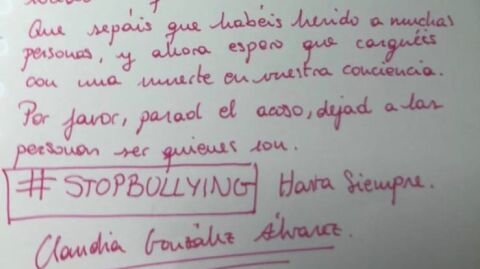 Que sepáis que habéis herido a muchas
personas, y ahora espero que carguéis
con una muerte en vuestra conciencia.
Por favor, parad el acoso, dejad a las
personas ser quienes son.
#STOPBULLYING Hasta Siempre.
Claudia González Álvarez.